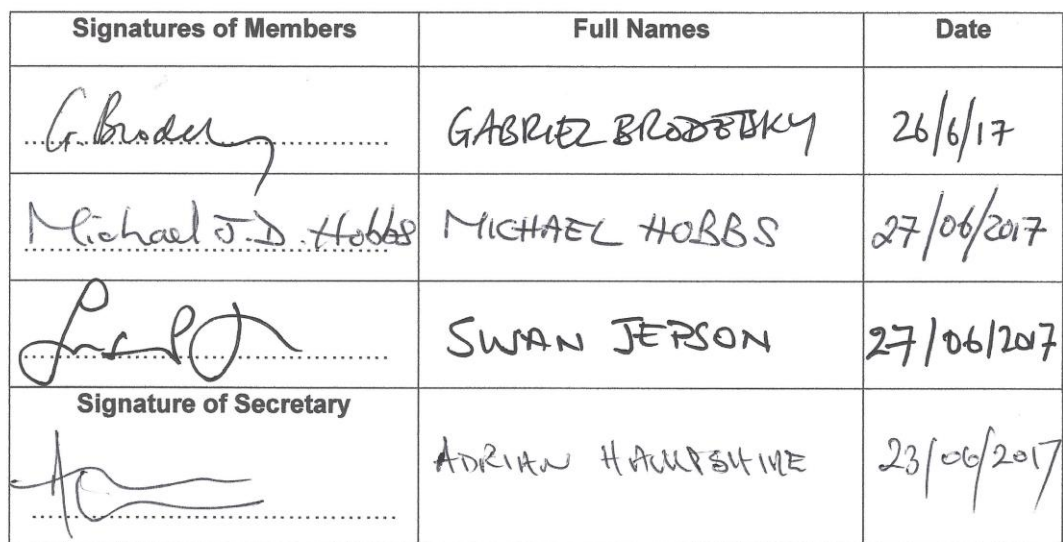 Signatures of Members Full Names Date
G. Brodetsky GABRIEL BRODETSKY 26/6/17
Michael J.D. Hobbs MICHAEL HOBBS 27/06/2017
SWAN JEPSON 27/06/2017
Signature of Secretary
ADRIAN HAMPSHIRE 23/06/2017